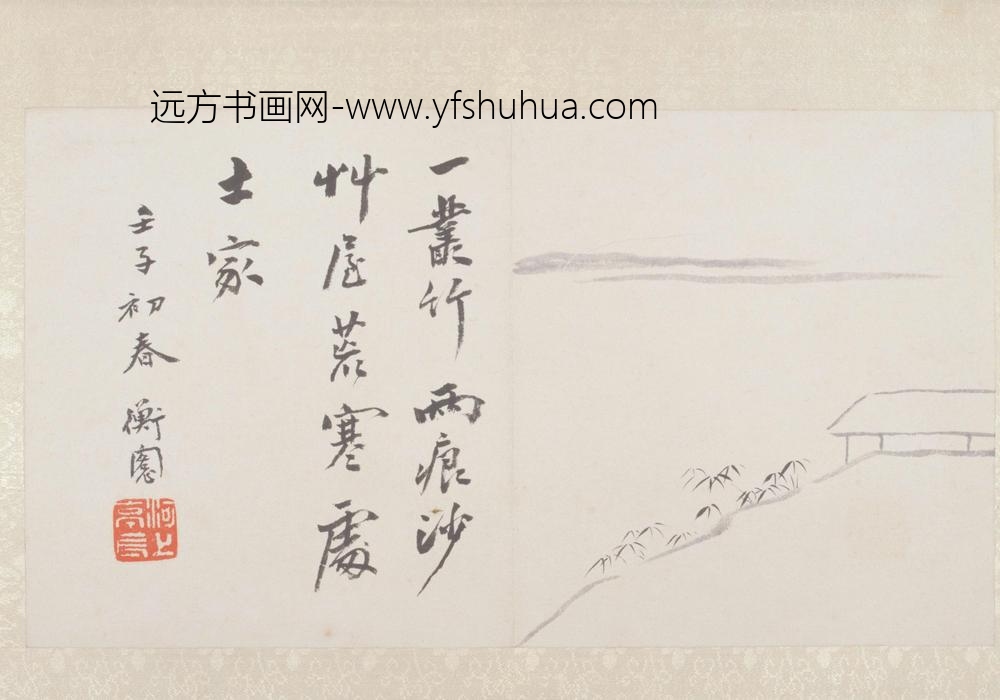 远方书画网-www.yfshuhua.com
一叢竹兩痕沙
艸屋荒寒處
士家
壬子初春 衡園